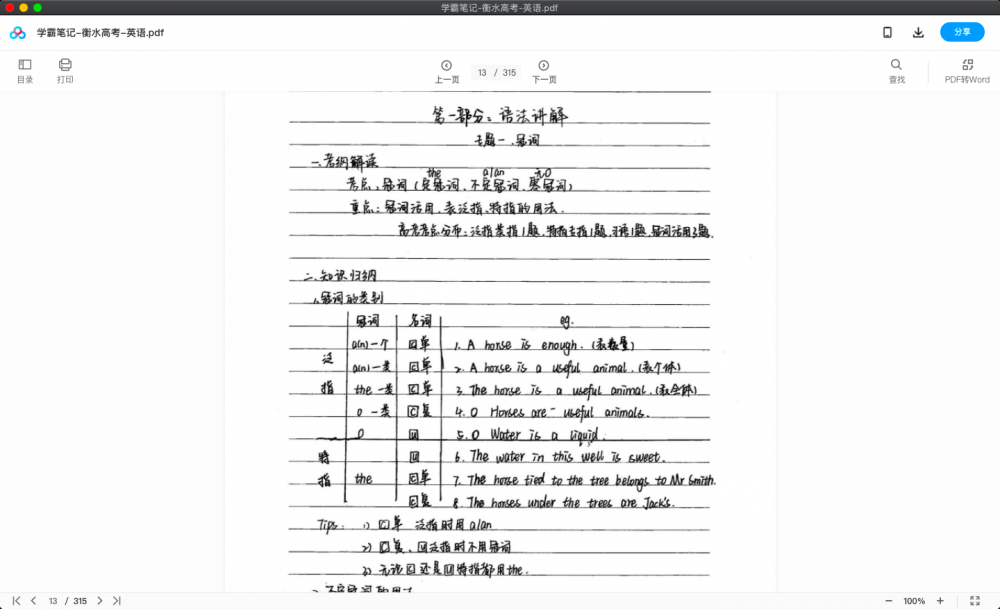 学霸笔记-衡水高考-英语.pdf
学霸笔记-衡水高考-英语.pdf 分享
目录 打印 上一页 13 / 315 下一页 查找 PDF转Word
第一部分：语法讲解
专题一、冠词
一、考纲解读
the a/an 无0
考点：冠词（定冠词、不定冠词、零冠词）
重点：冠词活用、表泛指、特指的用法.
高考考点分布：泛指类指1题、特指专指1题、习语1题、冠词活用3题.
二、知识归纳
1、冠词的类别
冠词 名词 eg.
泛指 a(n)一个 C单 1. A horse is enough.（表数量）
a(n)一类 C单 2. A horse is a useful animal.（表个体）
the 一类 C单 3. The horse is a useful animal.（表全体）
0 一类 C复 4. 0 Horses are useful animals.
0 U 5. 0 Water is a liquid.
特指 U 6. The water in this well is sweet.
the C单 7. The horse tied to the tree belongs to Mr Smith.
C复 8. The horses under the trees are Jack's.
Tips: 1) C单 泛指时用a/an
2) C复、U泛指时不用冠词
3) 无论C还是U特指都用the.
13 / 315 100%